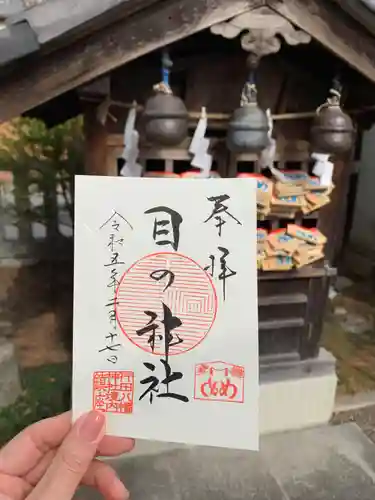 奉拝
目の神社
令和五年二月十七日
め
め